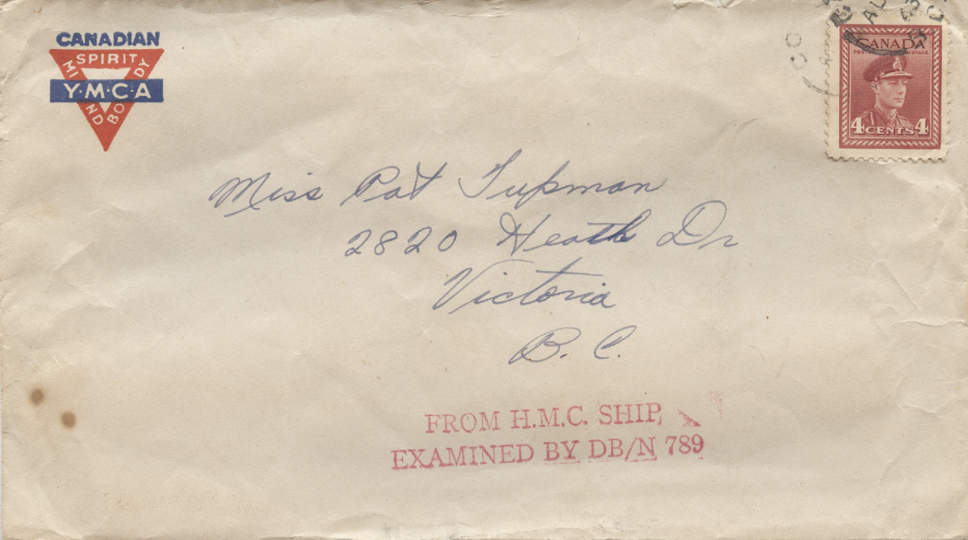 CANADIAN
SPIRIT
MIND
BODY
Y·M·C·A
CANADA
POSTES POSTAGE
4 CENTS 4
Miss Pat Tupman
2820 Heath Dr
Victoria
B. C.
FROM H.M.C. SHIP,
EXAMINED BY DB/N 789